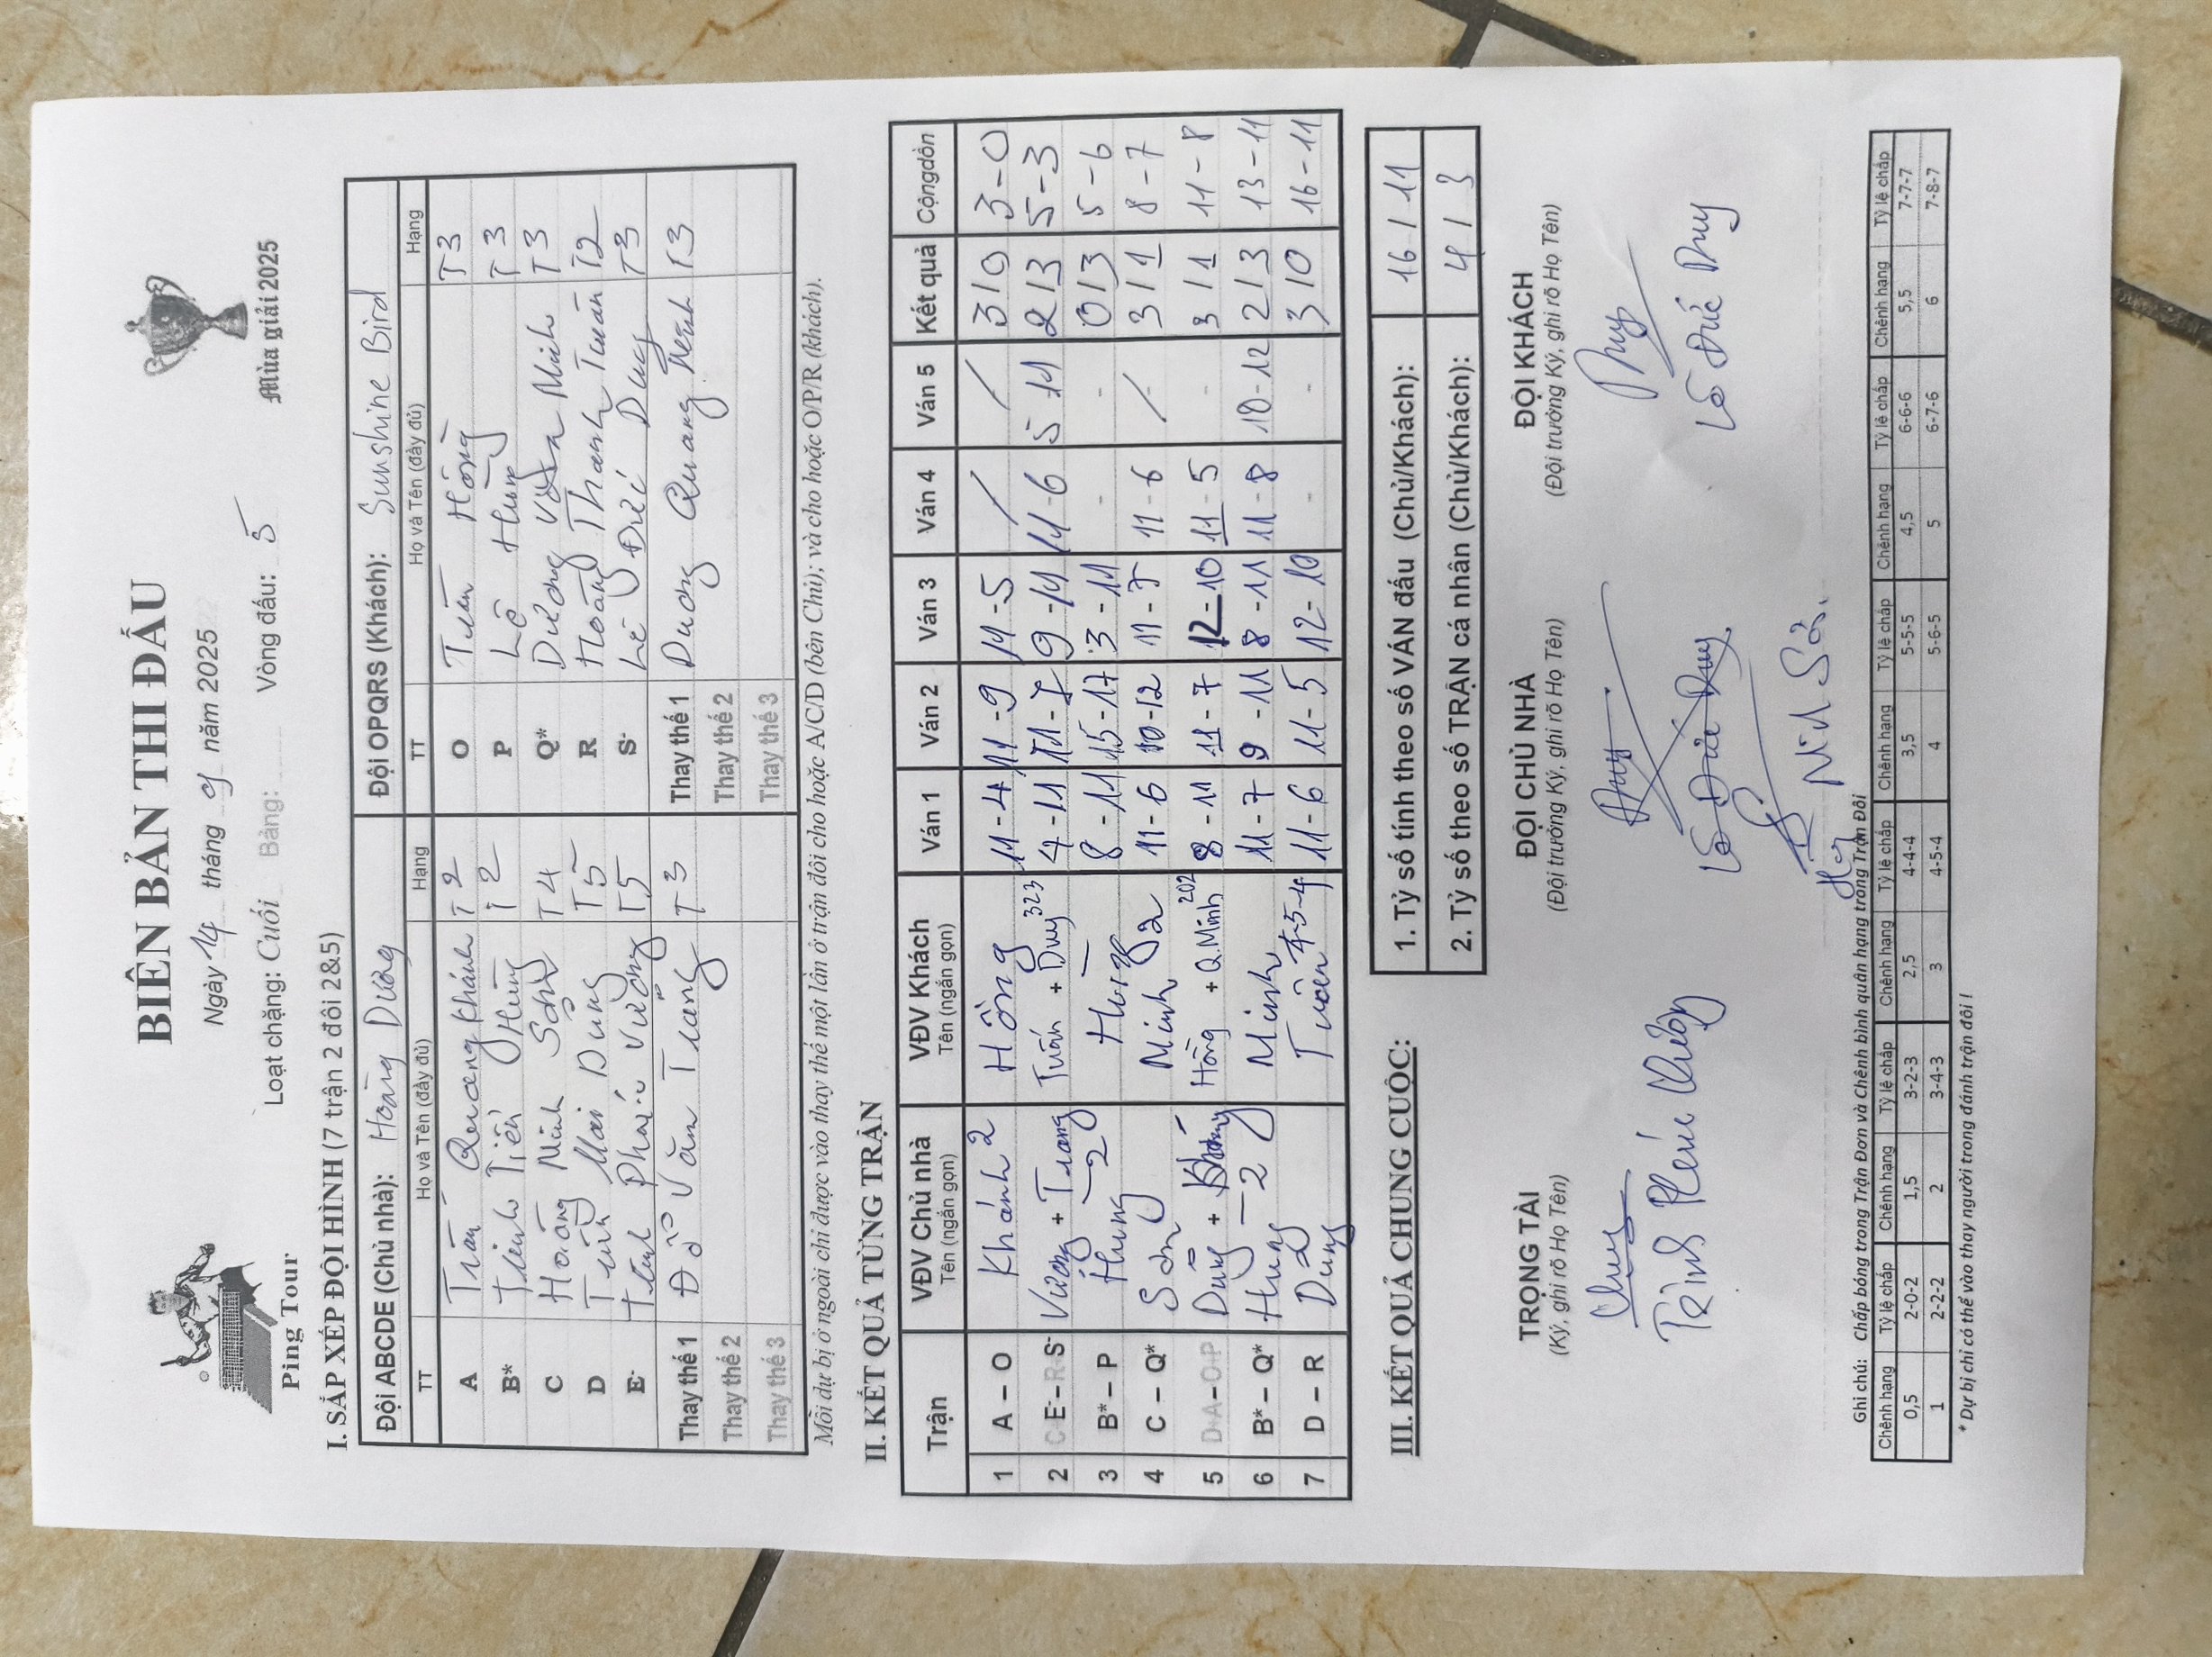 BIÊN BẢN THI ĐẤU
Ngày 14 tháng 9 năm 2025
Ping Tour
Loạt chặng: Cuối Bảng: Vòng đấu: 5
Mùa giải 2025
I. SẮP XẾP ĐỘI HÌNH (7 trận 2 đôi 2&5)
Đội ABCDE (Chủ nhà): Hoàng Dương Đội OPQRS (Khách): Sunshine Bird
TT Họ và Tên (đầy đủ) Hạng TT Họ và Tên (đầy đủ) Hạng
A Trần Quang Khánh T2 O Tuấn Hồng T3
B* Tiến Hùng T2 P Lô Hùng T3
C Hoàng Minh Sơn T4 Q* Dương Văn Minh T3
D Mai Dũng T5 R Hoàng Thanh Tuấn T2
E- Vương T5 S- Lê Đức Duy T3
Thay thế 1 Đỗ Văn Trang T3 Thay thế 1 Dương Quang Minh T3
Thay thế 2 Thay thế 2
Thay thế 3 Thay thế 3
Mỗi dự bị ở ngoài chỉ được vào thay thế một lần ở trận đôi cho hoặc A/C/D (bên Chủ); và cho hoặc O/P/R (khách).
II. KẾT QUẢ TỪNG TRẬN
Trận VĐV Chủ nhà VĐV Khách Ván 1 Ván 2 Ván 3 Ván 4 Ván 5 Kết quả Cộng dồn
Tên (ngắn gọn) Tên (ngắn gọn)
1 A – O Khánh 2 Hồng 11-4 11-9 11-5 / / 3/0 3-0
2 C E – R S- Vương + Trang Tuấn + Duy 323 4-11 11-7 9-11 11-6 5-11 2/3 5-3
3 B* – P Hùng 2 Hùng 8-11 15-17 3-11 - - 0/3 5-6
4 C – Q* Sơn Minh 2 11-6 10-12 11-7 11-6 / 3/1 8-7
5 D A – O P Dũng + Khánh Hồng + Q.Minh 202 8-11 11-7 12-10 11-5 - 3/1 11-8
6 B* – Q* Hùng – 2 Minh 11-7 9-11 8-11 11-8 10-12 2/3 13-11
7 D – R Dung Tuấn 4-5-4 11-6 11-5 12-10 - - 3/0 16-11
III. KẾT QUẢ CHUNG CUỘC:
1. Tỷ số tính theo số VÁN đấu (Chủ/Khách): 16 / 11
2. Tỷ số theo số TRẬN cá nhân (Chủ/Khách): 4 / 3
TRỌNG TÀI ĐỘI CHỦ NHÀ ĐỘI KHÁCH
(Ký, ghi rõ Họ Tên) (Đội trưởng Ký, ghi rõ Họ Tên) (Đội trưởng Ký, ghi rõ Họ Tên)
Duy Duy
Lê Đức Duy Lê Đức Duy
Ghi chú: Chấp bóng trong Trận Đơn và Chênh bình quân hạng trong Trận Đôi
Chênh hạng Tỷ lệ chấp Chênh hạng Tỷ lệ chấp Chênh hạng Tỷ lệ chấp Chênh hạng Tỷ lệ chấp Chênh hạng Tỷ lệ chấp Chênh hạng Tỷ lệ chấp Chênh hạng Tỷ lệ chấp
0,5 2-0-2 1,5 3-2-3 2,5 4-4-4 3,5 5-5-5 4,5 6-6-6 5,5 7-7-7
1 2-2-2 2 3-4-3 3 4-5-4 4 5-6-5 5 6-7-6 6 7-8-7
* Dự bị chỉ có thể vào thay người trong đánh trận đôi !